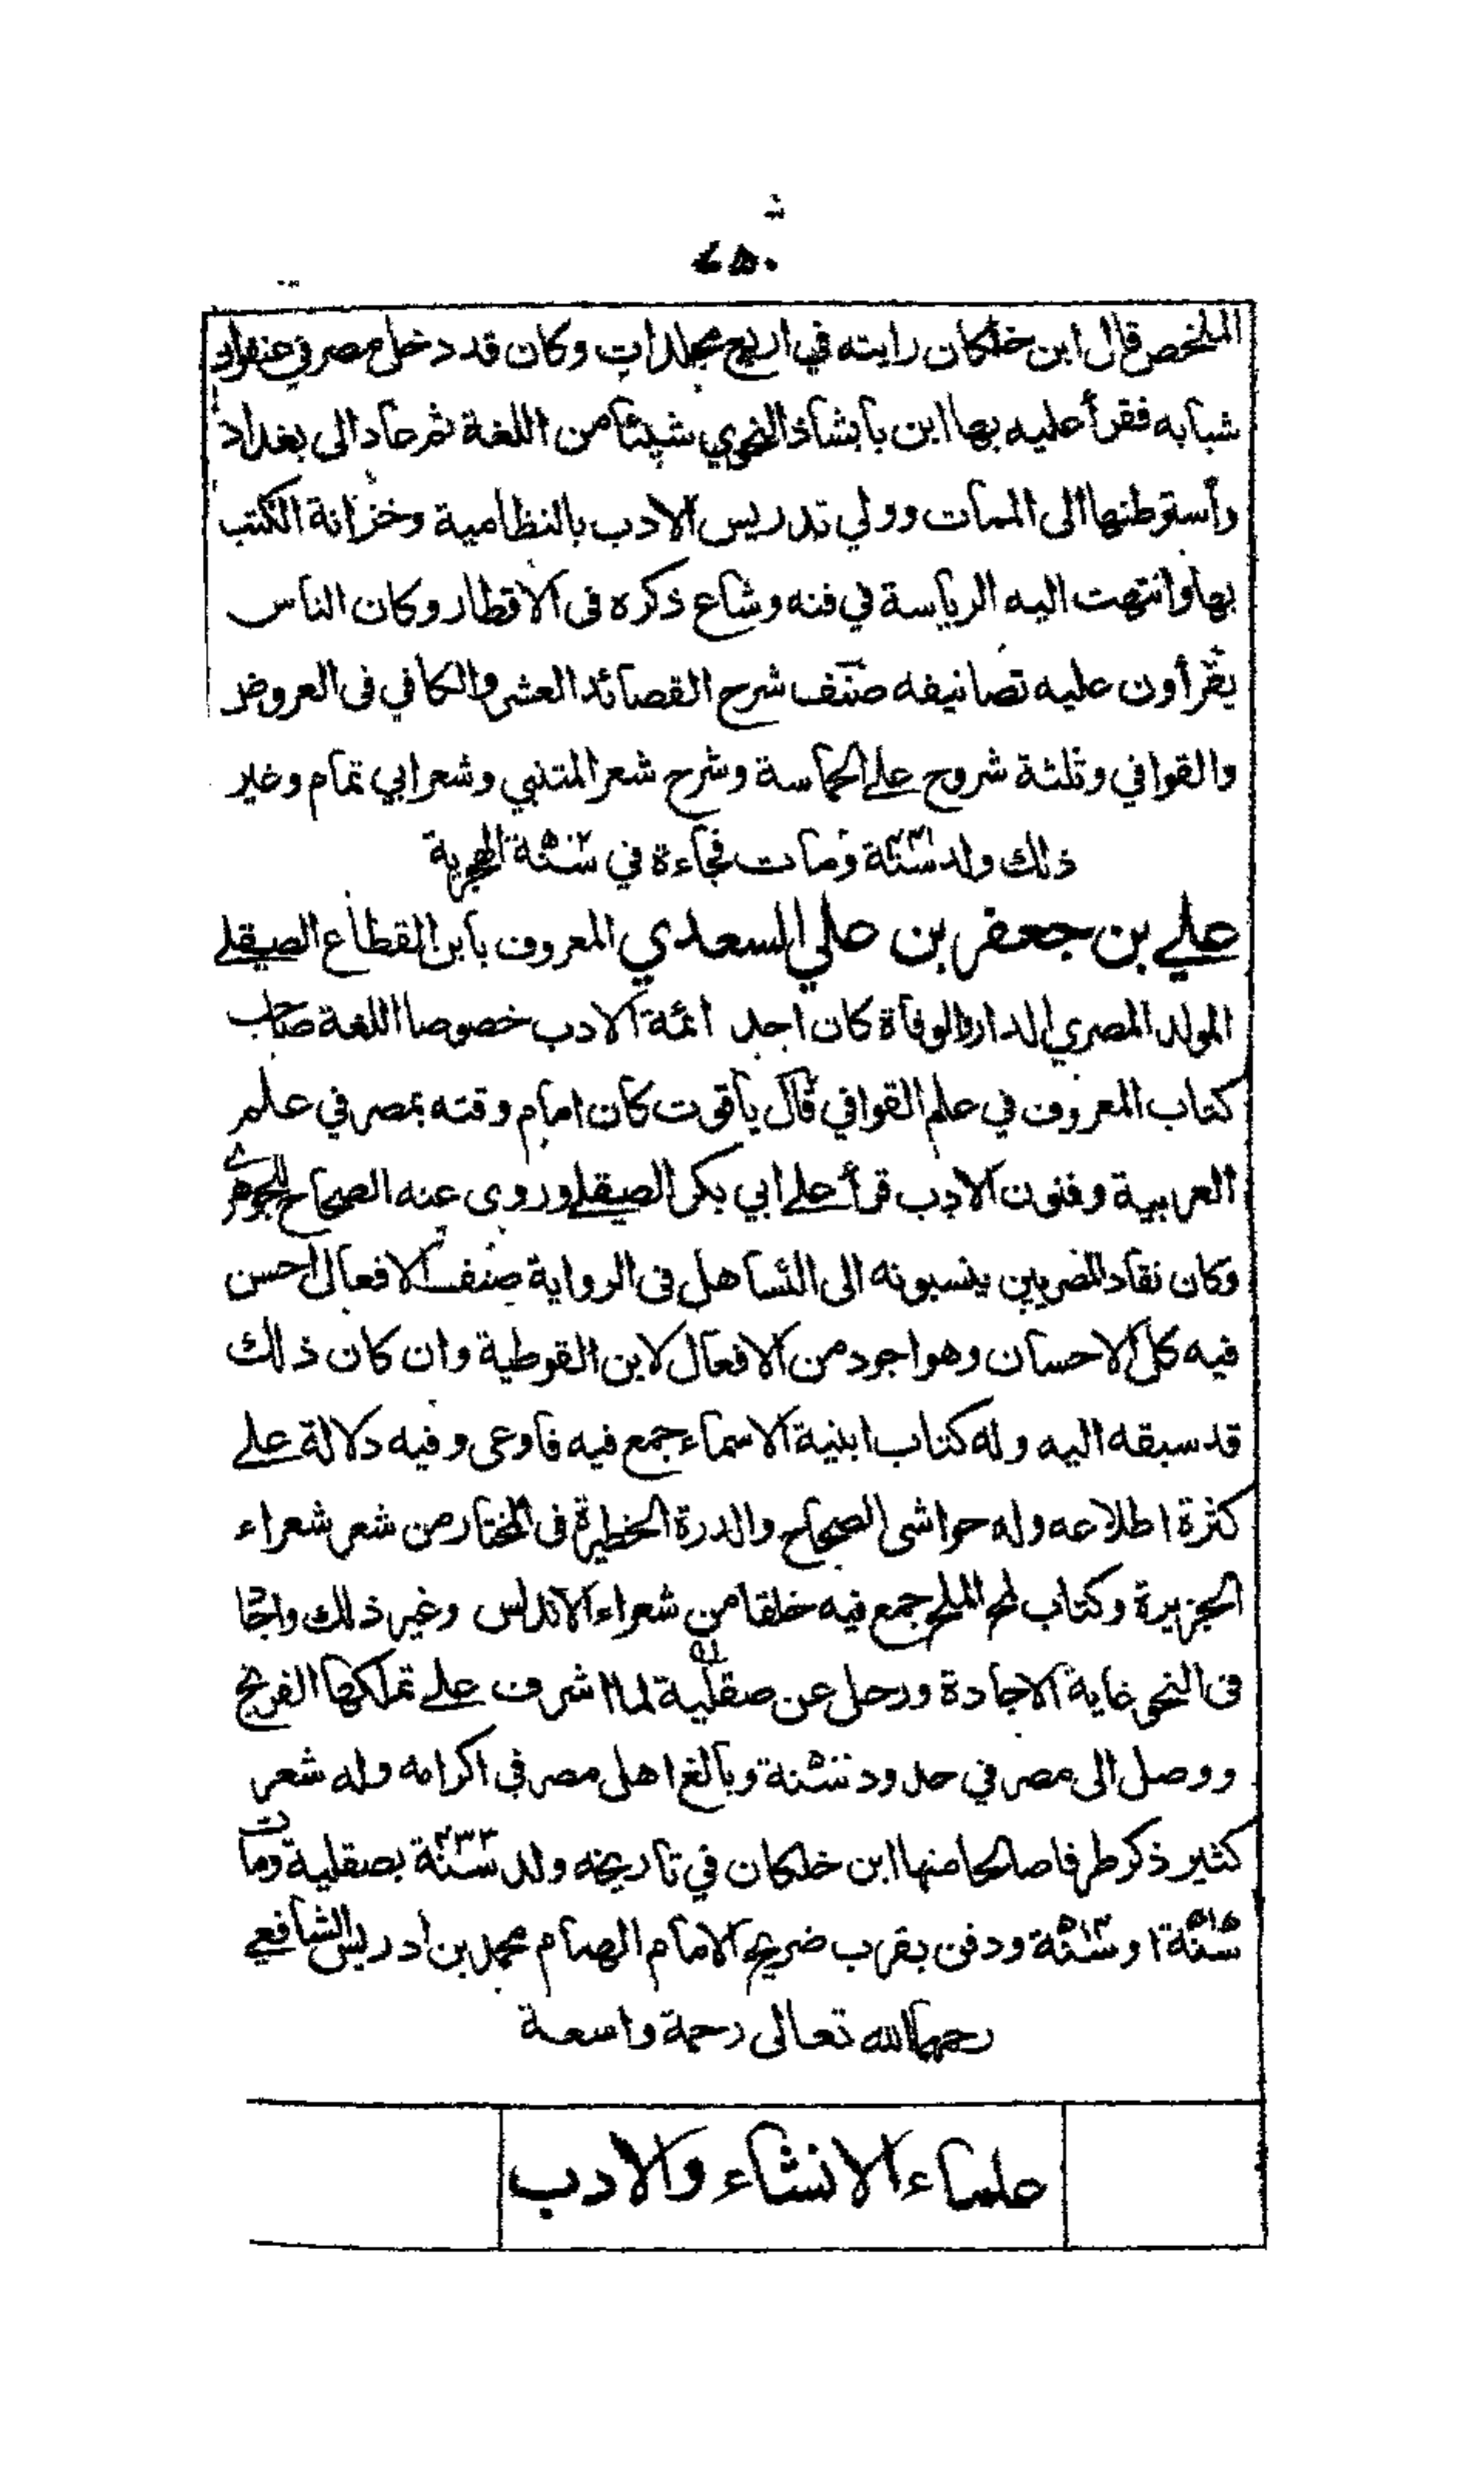 الملخص قال ابن خلكان رايته في اربع مجلدات وكان قد دخل مصر في عنفوان
شبابه فقرأ عليه بها ابن بابشاذ النحوي شيئا من اللغة ثم عاد الى بغداد
واستوطنها الى الممات وولي تدريس الادب بالنظامية وخزانة الكتب
بها وانتهت اليه الرياسة في فنه وشاع ذكره فى الاقطار وكان الناس
يقرأون عليه تصانيفه صنف شرح القصائد العشر والكافي فى العروض
والقوافي وثلثة شروح على الحماسة وشرح شعر المتنبي وشعر ابي تمام وغير
ذلك ولد سنة ومات فجاءة في سنة الهجرية
علي بن جعفر بن علي السعدي المعروف بابن القطاع الصيقلے
المولد المصري الدار والوفاة كان احد ائمة الادب خصوصا اللغة صاحب
كتاب المعروف في علم القوافي قال ياقوت كان امام وقته بمصر في علم
العربية وفنون الادب قرأ على ابي بكر الصيقلے وروى عنه الصحاح للجوهرے
وكان نقاد المصريين ينسبونه الى التساهل فى الرواية صنف الافعال احسن
فيه كل الاحسان وهو اجود من الافعال لابن القوطية وان كان ذلك
قد سبقه اليه وله كتاب ابنية الاسماء جمع فيه فاوعى وفيه دلالة علے
كثرة اطلاعه وله حواشى الصحاح والدرة الخطيرة فى المختار من شعر شعراء
الجزيرة وكتاب لمح الملح جمع فيه خلقا من شعراء الاندلس وغير ذلك واجاد
فى النحو غاية الاجادة ورحل عن صقلية لما اشرف علے تملكها الفرنج
ووصل الى مصر في حدود سنة وبالغ اهل مصر في اكرامه وله شعر
كثير ذكر طرفا صالحا منها ابن خلكان في تاريخه ولد سنة ٤٣٣ بصقلية ومات
سنة ٥١٥ او سنة ٥١٤ ودفن بقرب ضريح الامام الهمام محمد بن ادريس الشافعي
رحمهما الله تعالى رحمة واسعة
علماء الانشاء والادب